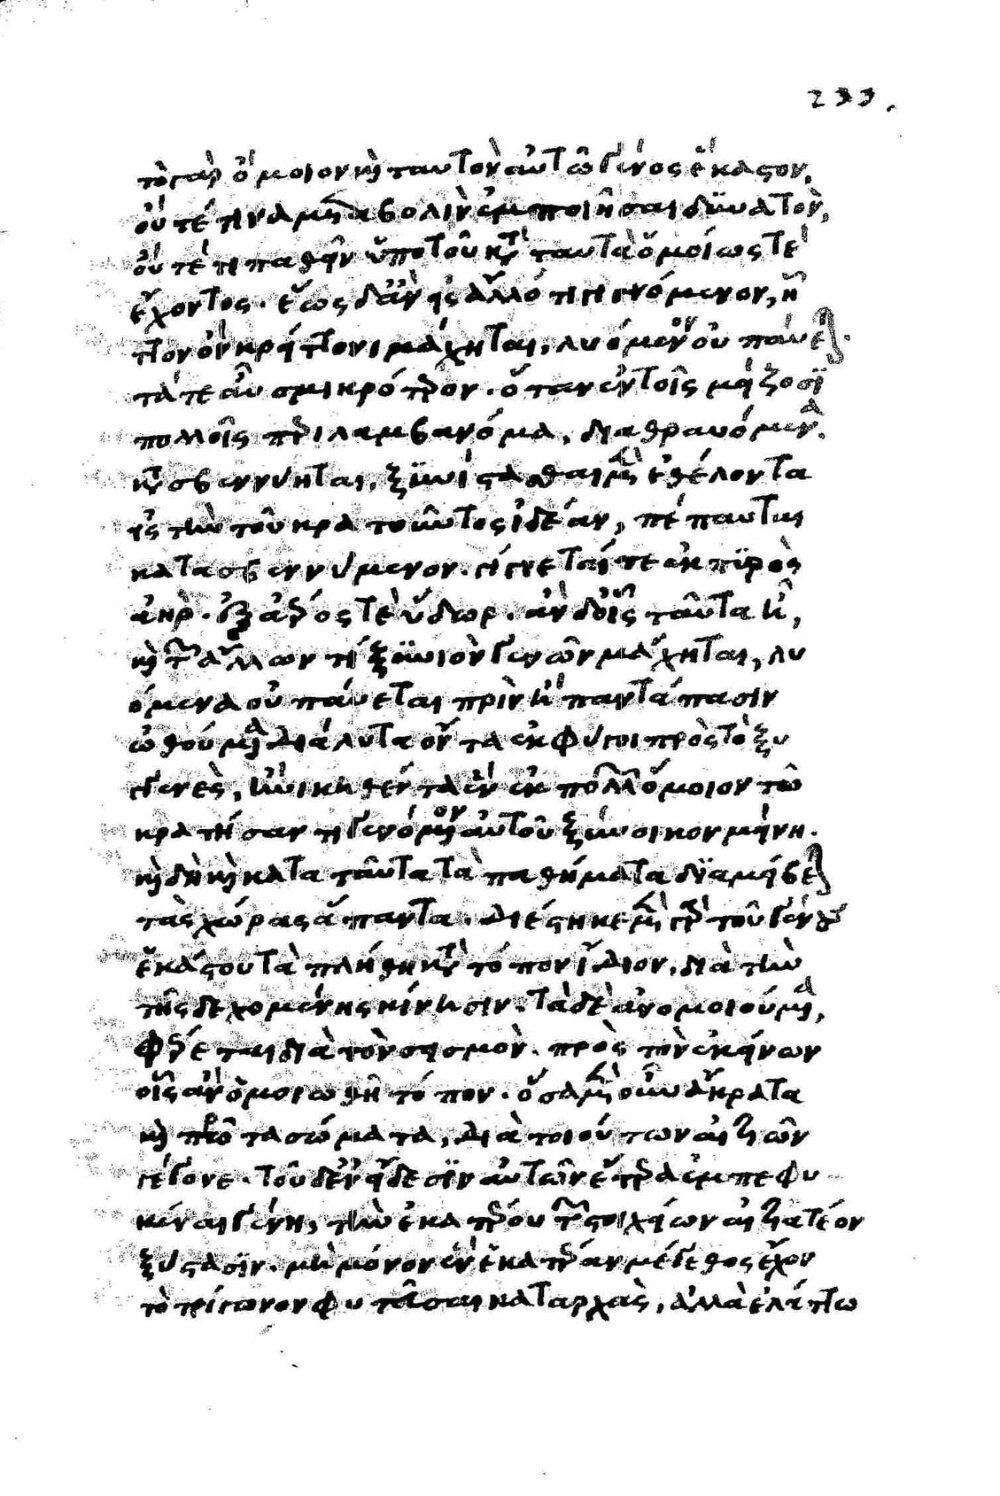 233.
τὸ γὰρ ὅμοιον καὶ ταυτὸν αὐτῶ γένος ἕκαστον,
οὔτέ τινα μεταβολὴν ἐμποιῆσαι δυνατὸν,
οὔτέ τι παθεῖν ὑπὸ τοῦ κατὰ ταυτὰ ὁμοίως τὲ
ἔχοντος. ἕως δ' ἂν εἰς ἄλλό τι γινόμενον, ἧ
ττον ὂν κρείττονι μάχηται, λυόμενον οὐ παύε
τά τε αὖ σμικρότερον. ὅταν ἐν τοῖς μείζοσϊ
πολλοῖς περιλαμβανόμενα, διαθραυόμενα
κατασβεννύηται, ξυνίστασθαι μὲν ἐθέλοντα
εἰς τὴν τοῦ κρατοῦντος ἰδέαν, πέπαυται
κατασβεννύμενον. γίγνεταί τε ἐκ πυρὸς
ἀὴρ. ἐξ ἀέρος τὲ ὕδωρ. ἐὰν δ' εἰς ταῦτα ἴῃ,
καὶ τῶν ἄλλων τὶ ξυνιὸν γενῶν μάχηται, λυ
όμενα οὐ παύεται πρὶν ἢ παντάπασιν
ὠθούμενα καὶ διαλυθέντα ἐκφύγοι πρὸς τὸ ξυ
γγενὲς, ἢ νικηθέντα ἓν ἐκ πολλῶν ὅμοιον τῶ
κρατήσαντι γενόμενον αὐτοῦ ξύνοικον μείνῃ.
καὶ δὴ καὶ κατὰ ταῦτα τὰ παθήματα διαμείβε
τὰς χώρας ἅπαντα. διέστηκε μὲν γὰρ τοῦ γένους
ἑκάστου τὰ πλήθη κατὰ τόπον ἴδιον, διὰ τὴν
τῆς δεχομένης κίνησιν. τὰ δὲ ἀνομοιούμενα,
φέρεται διὰ τὸν σεισμὸν. πρὸς τὸν ἐκείνων
οἷς ἂν ὁμοιωθῆ τόπον. ὅσα μὲν οὖν ἄκρατα
καὶ πρῶτα σώματα, διὰ τοιούτων αἰτιῶν
γέγονε. τοῦ δ' ἐν εἴδεσϊν αὐτῶν ἕτερα ἐμπεφυ
κέναι γένη, τὴν ἑκατέρου τῶν στοιχείων αἰτιατέον
ξύστασϊν. μὴ μόνον ἓν ἑκατέραν μέγεθος ἔχον
τὸ τρίγωνον φυτεῦσαι καταρχὰς, ἀλλὰ ἐλάττω